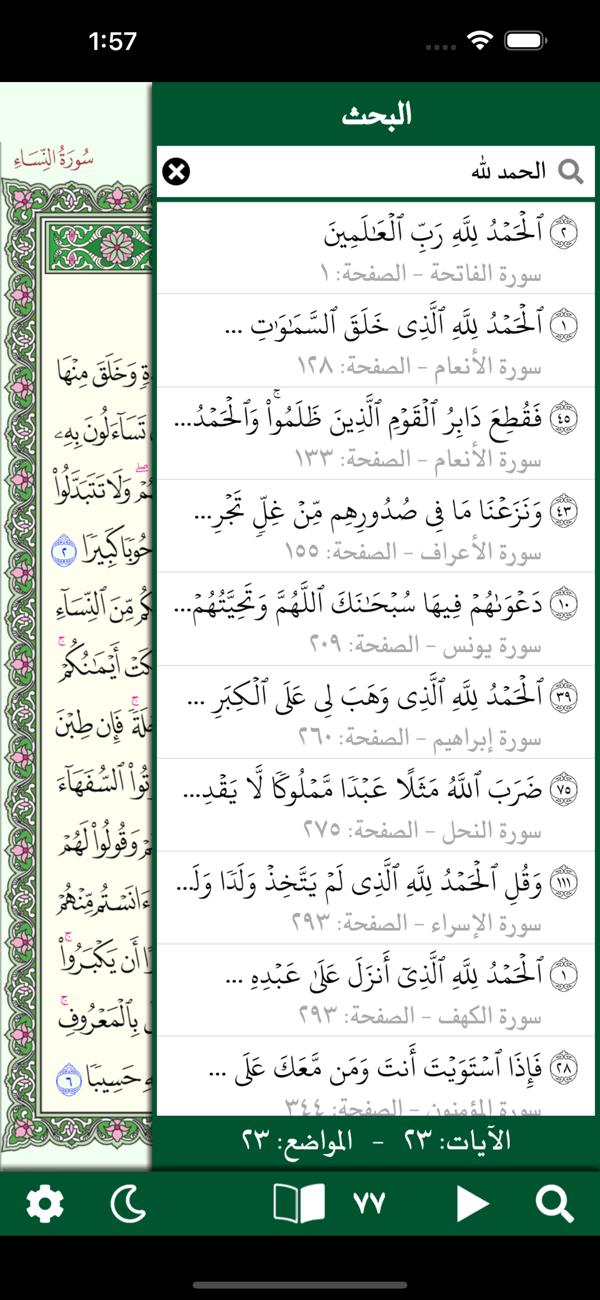 1:57
البحث
الحمد لله
٢ ٱلۡحَمۡدُ لِلَّهِ رَبِّ ٱلۡعَٰلَمِينَ
سورة الفاتحة - الصفحة: ١
١ ٱلۡحَمۡدُ لِلَّهِ ٱلَّذِي خَلَقَ ٱلسَّمَٰوَٰتِ ...
سورة الأنعام - الصفحة: ١٢٨
٤٥ فَقُطِعَ دَابِرُ ٱلۡقَوۡمِ ٱلَّذِينَ ظَلَمُواْۚ وَٱلۡحَمۡدُ...
سورة الأنعام - الصفحة: ١٣٣
٤٣ وَنَزَعۡنَا مَا فِي صُدُورِهِم مِّنۡ غِلّٖ تَجۡرِ...
سورة الأعراف - الصفحة: ١٥٥
١٠ دَعۡوَىٰهُمۡ فِيهَا سُبۡحَٰنَكَ ٱللَّهُمَّ وَتَحِيَّتُهُمۡ...
سورة يونس - الصفحة: ٢٠٩
٣٩ ٱلۡحَمۡدُ لِلَّهِ ٱلَّذِي وَهَبَ لِي عَلَى ٱلۡكِبَرِ ...
سورة إبراهيم - الصفحة: ٢٦٠
٧٥ ضَرَبَ ٱللَّهُ مَثَلًا عَبۡدٗا مَّمۡلُوكٗا لَّا يَقۡدِ...
سورة النحل - الصفحة: ٢٧٥
١١١ وَقُلِ ٱلۡحَمۡدُ لِلَّهِ ٱلَّذِي لَمۡ يَتَّخِذۡ وَلَدٗا وَلَ...
سورة الإسراء - الصفحة: ٢٩٣
١ ٱلۡحَمۡدُ لِلَّهِ ٱلَّذِيٓ أَنزَلَ عَلَىٰ عَبۡدِهِ ...
سورة الكهف - الصفحة: ٢٩٣
٢٨ فَإِذَا ٱسۡتَوَيۡتَ أَنتَ وَمَن مَّعَكَ عَلَى ...
سورة المؤمنون - الصفحة: ٣٤٤
الآيات: ٢٣ - المواضع: ٢٣
٧٧
سُورَةُ النِّسَاءِ
وَخَلَقَ مِنۡهَا
تَسَآءَلُونَ بِهِۦ
وَلَا تَتَبَدَّلُواْ
حُوبٗا كَبِيرٗا ٢
مِّنَ ٱلنِّسَآءِ
أَيۡمَٰنُكُمۡۚ
فَإِن طِبۡنَ
ٱلسُّفَهَآءَ
وَقُولُواْ لَهُمۡ
ءَانَسۡتُم مِّنۡهُمۡ
أَن يَكۡبَرُواْۚ
بِٱلۡمَعۡرُوفِۚ
حَسِيبٗا ٦